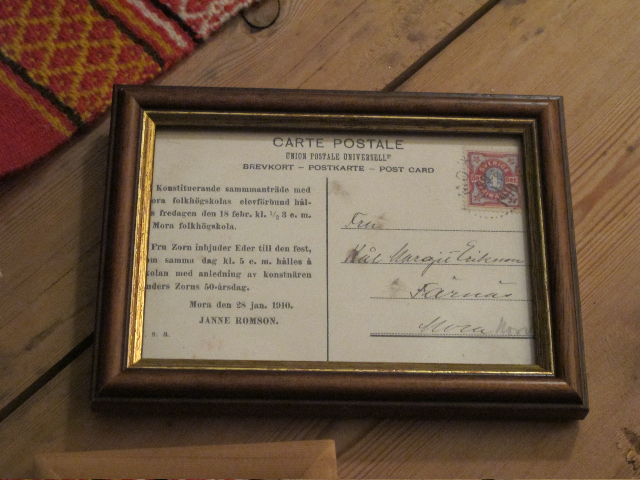 CARTE POSTALE
UNION POSTALE UNIVERSELLE
BREVKORT — POSTKARTE — POST CARD
Konstituerande sammanträde med
ora folkhögskolas elevförbund hål-
s fredagen den 18 febr. kl. ½ 3 e. m.
Mora folkhögskola.
Fru Zorn inbjuder Eder till den fest,
om samma dag kl. 5 e. m. hålles å
kolan med anledning av konstnären
nders Zorns 50-årsdag.
Mora den 28 jan. 1910.
JANNE ROMSON.
SVERIGE
Fru
Margit Eriksson
Färnäs
Mora